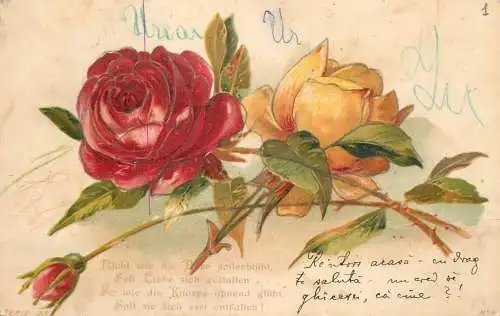 1
Urian Ur
Nicht wie die Rose aufgeblüht,
Soll Liebe sich gestalten,
So wie die Knospe glüht,
Soll sie sich erst entfalten!
acasă - cu drag
te salută - nu cred să
ghicesci, că cine ?!